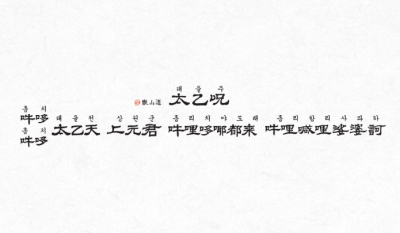 태을주
太乙呪
훔치
吽哆
훔치
吽哆
태을천 상원군 훔리치야도래 훔리함리사파하
太乙天 上元君 吽哩哆㖿都來 吽哩喊哩娑婆訶